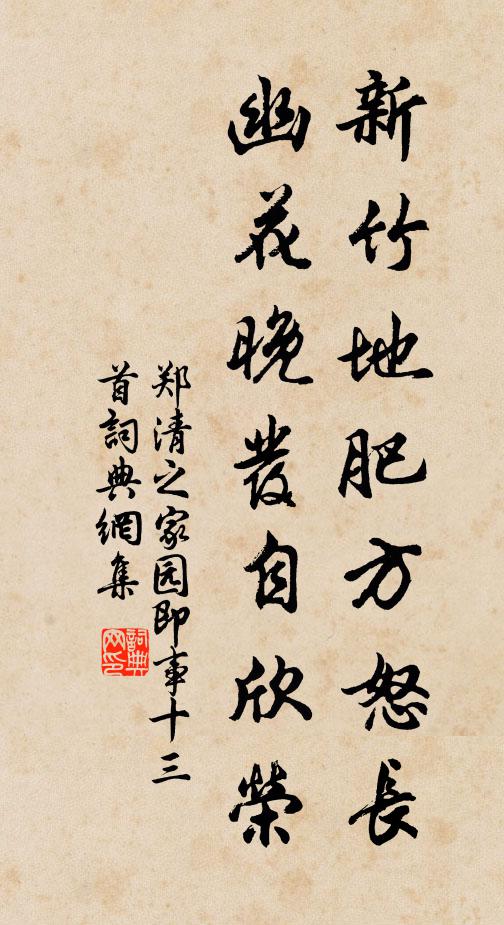 新竹地肥方怒長
幽花晚發自欣榮
郑清之家园即事十三
首詞典網集
詞典
网印